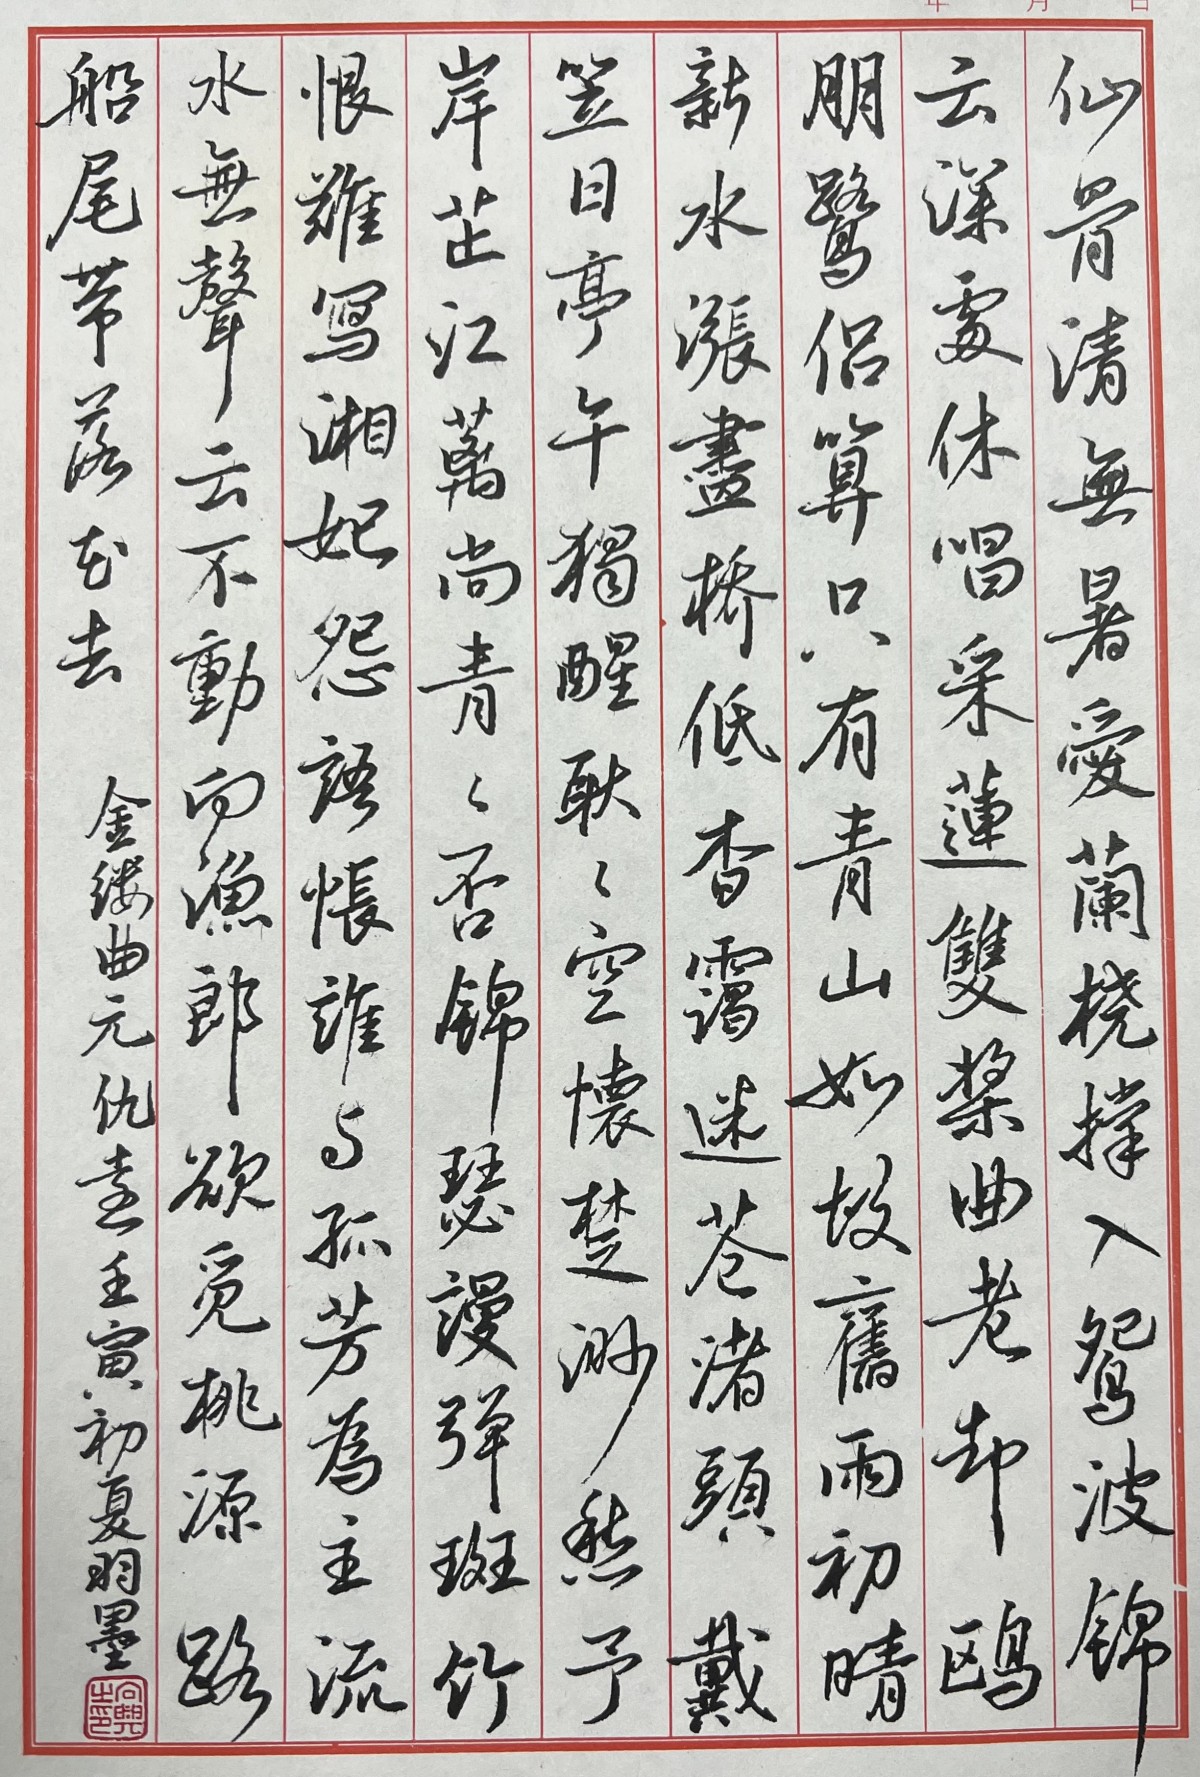 年 月 日
仙骨清無暑愛蘭橈撐入鴛波錦
云深處休唱采蓮雙槳曲老却鷗
朋鷺侶算只有青山如故舊雨初晴
新水漲畫橋低香靄迷蒼渚頭戴
笠日亭午獨醒耿〻空懷楚渺愁予
岸芷江蘺尚青〻否錦瑟謾彈斑竹
恨難寫湘妃怨語悵誰与孤芳為主流
水無聲云不動向漁郎欲覓桃源路
船尾帶落花去
金缕曲元仇遠壬寅初夏羽墨